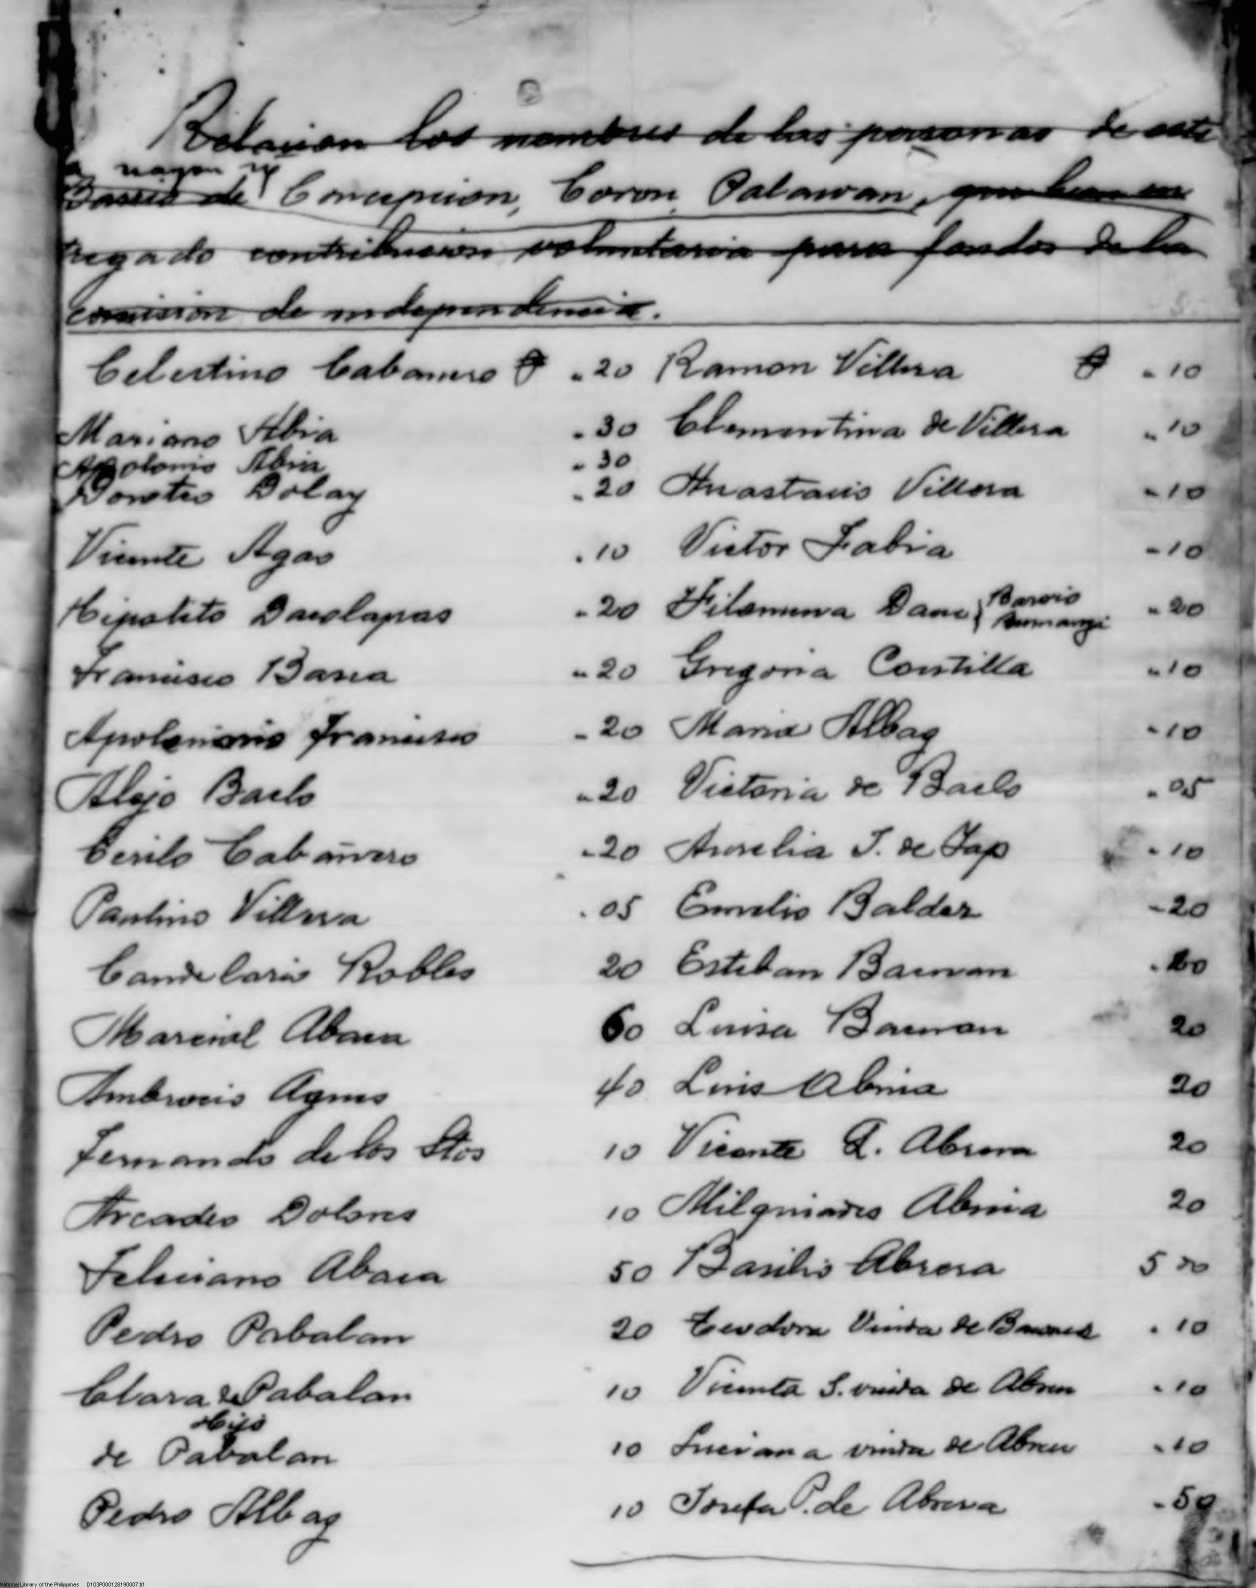 Relacion los nombres de las personas de este
nayon ng
Barrio de Concepcion, Coron, Palawan, que han en
tregado contribucion voluntaria para fondos de la
comision de independencia.
Celestino Cabanero ₱ .20 Ramon Villera ₱ .10
Mariano Abia .30 Clementina de Villera .10
Apolonio Abia .30
Donato Dolay .20 Anastacio Villera .10
Vicente Agao .10 Victor Fabia .10
Hipolito Dacolapas .20 Filomena Dane { Barrio
.20
Francisco Basea .20 Gregoria Contilla .10
Apolonario Francisco .20 Maria Albag .10
Alejo Baelo .20 Victoria de Baelo .05
Cirilo Cabañero .20 Aurelia T. de Yap .10
Paulino Villera .05 Emelio Balder .20
Candelario Robles 20 Esteban Bacuran
Marcial Abaca 60 Luisa Bacuran 20
Ambrocio Agnes 40 Luis Abria 20
Fernando de los Stos 10 Vicente Q. Abrera 20
Arcadio Dolores 10 Milquiades Abria 20
Feliciano Abaca 50 Basilio Abrera 5 00
Pedro Pabalan 20 Teodora Viuda de .10
Clara de Pabalan 10 Vicenta S. viuda de Abreu .10
Hijo
de Pabalan 10 Luciana viuda de Abreu .10
Pedro Albag 10 Josefa P. de Abrera .50
National Library of the Philippines D103P000128190007.tif